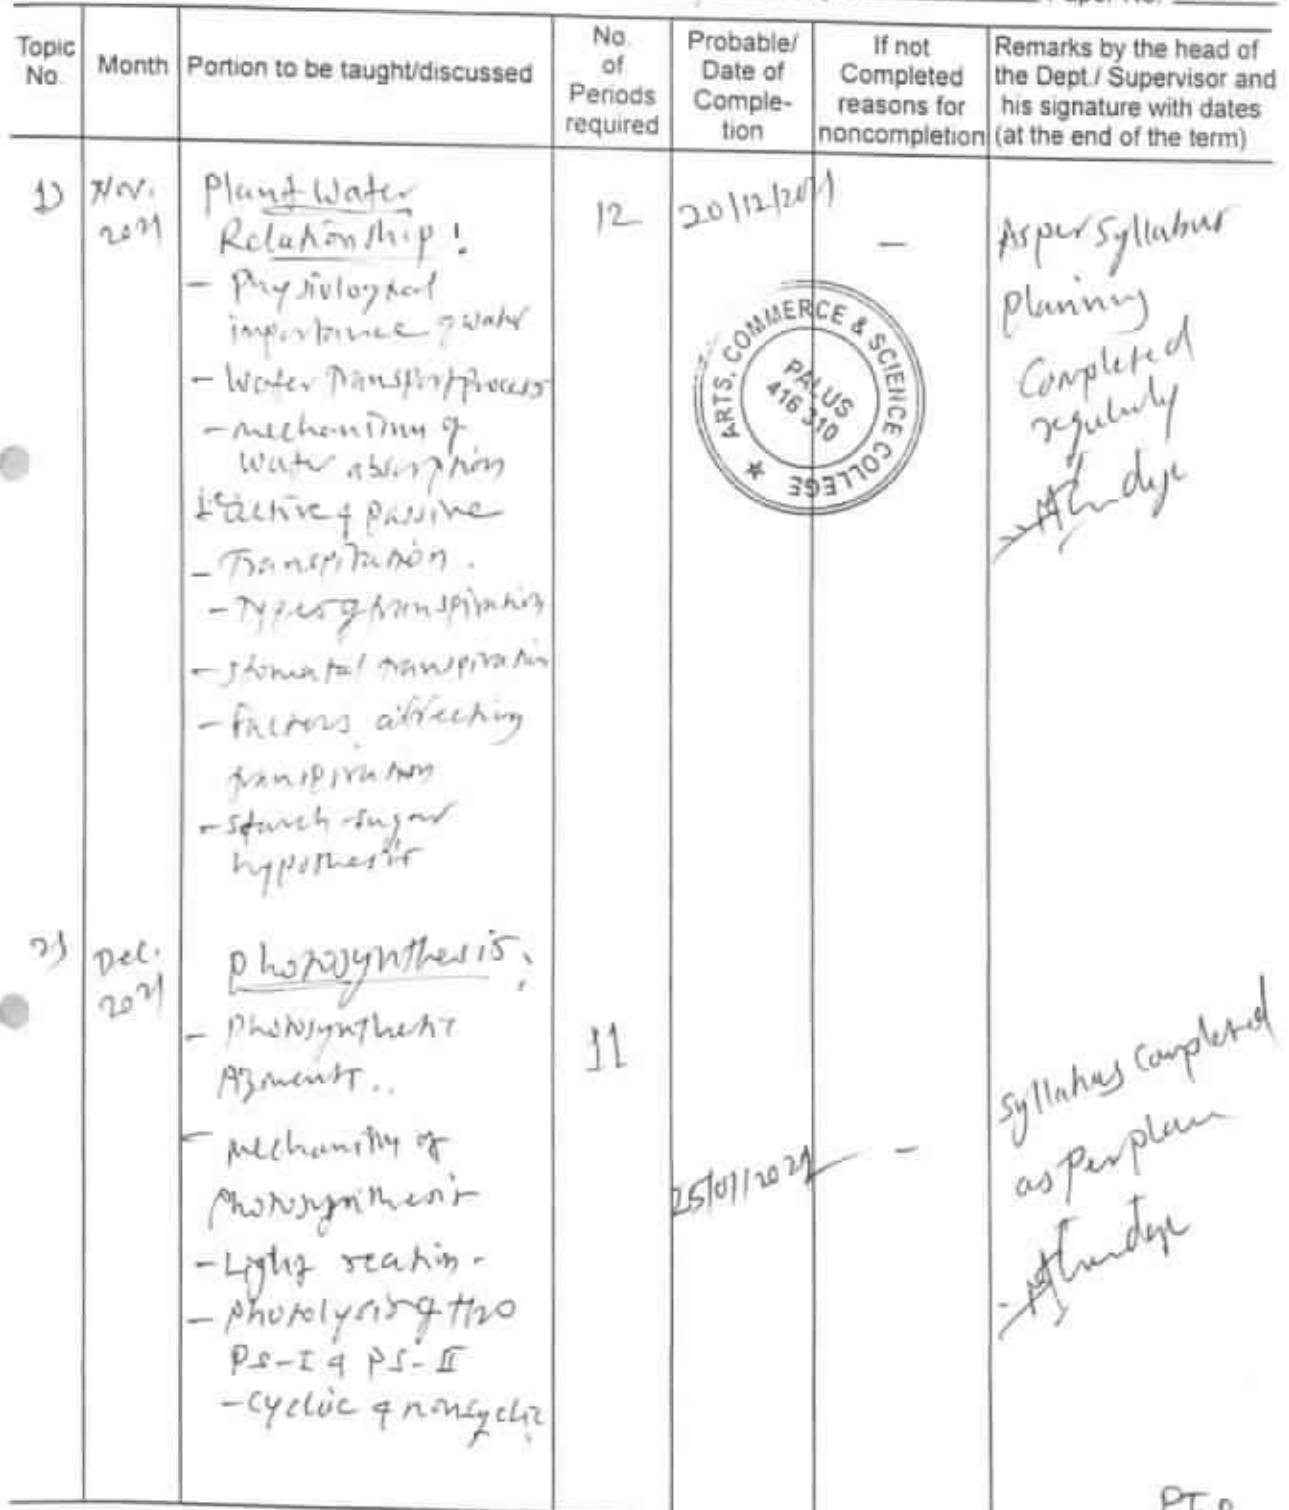 Paper No.
Topic No.
Month
Portion to be taught/discussed
No. of Periods required
Probable/ Date of Comple- tion
If not Completed reasons for noncompletion
Remarks by the head of the Dept./ Supervisor and his signature with dates (at the end of the term)
1)
Nov. 2021
Plant Water
Relationship :
- Physiological
importance of water
- Water Transport process
- mechanism of
water absorption
i.e active & passive
- Transpiration.
- Types of transpiration
- Stomatal transpiration
- factors affecting
transpiration
- starch-sugar
hypothesis
12
20/12/2021
—
As per Syllabus
planning
Completed
regularly
ARTS, COMMERCE & SCIENCE COLLEGE
PALUS
416 310
2)
Dec. 2021
photosynthesis :
- Photosynthetic
- mechanism of
photosynthesis
- Light reaction -
- photolysis of H2O
PS-I & PS-II
- cyclic & noncyclic
11
25/01/2021
—
Syllabus Completed
as per plan